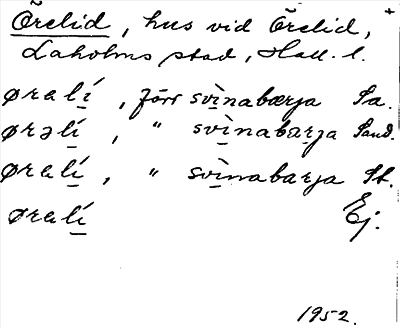 Örelid, hus vid Örelid, +
Laholms stad, Hall. l.
øralí, förr svìnabærja Sa.
ørəlí, " svìnabarja Sand.
øralí, " svìnabarja St.
øralí Ej.
1952.